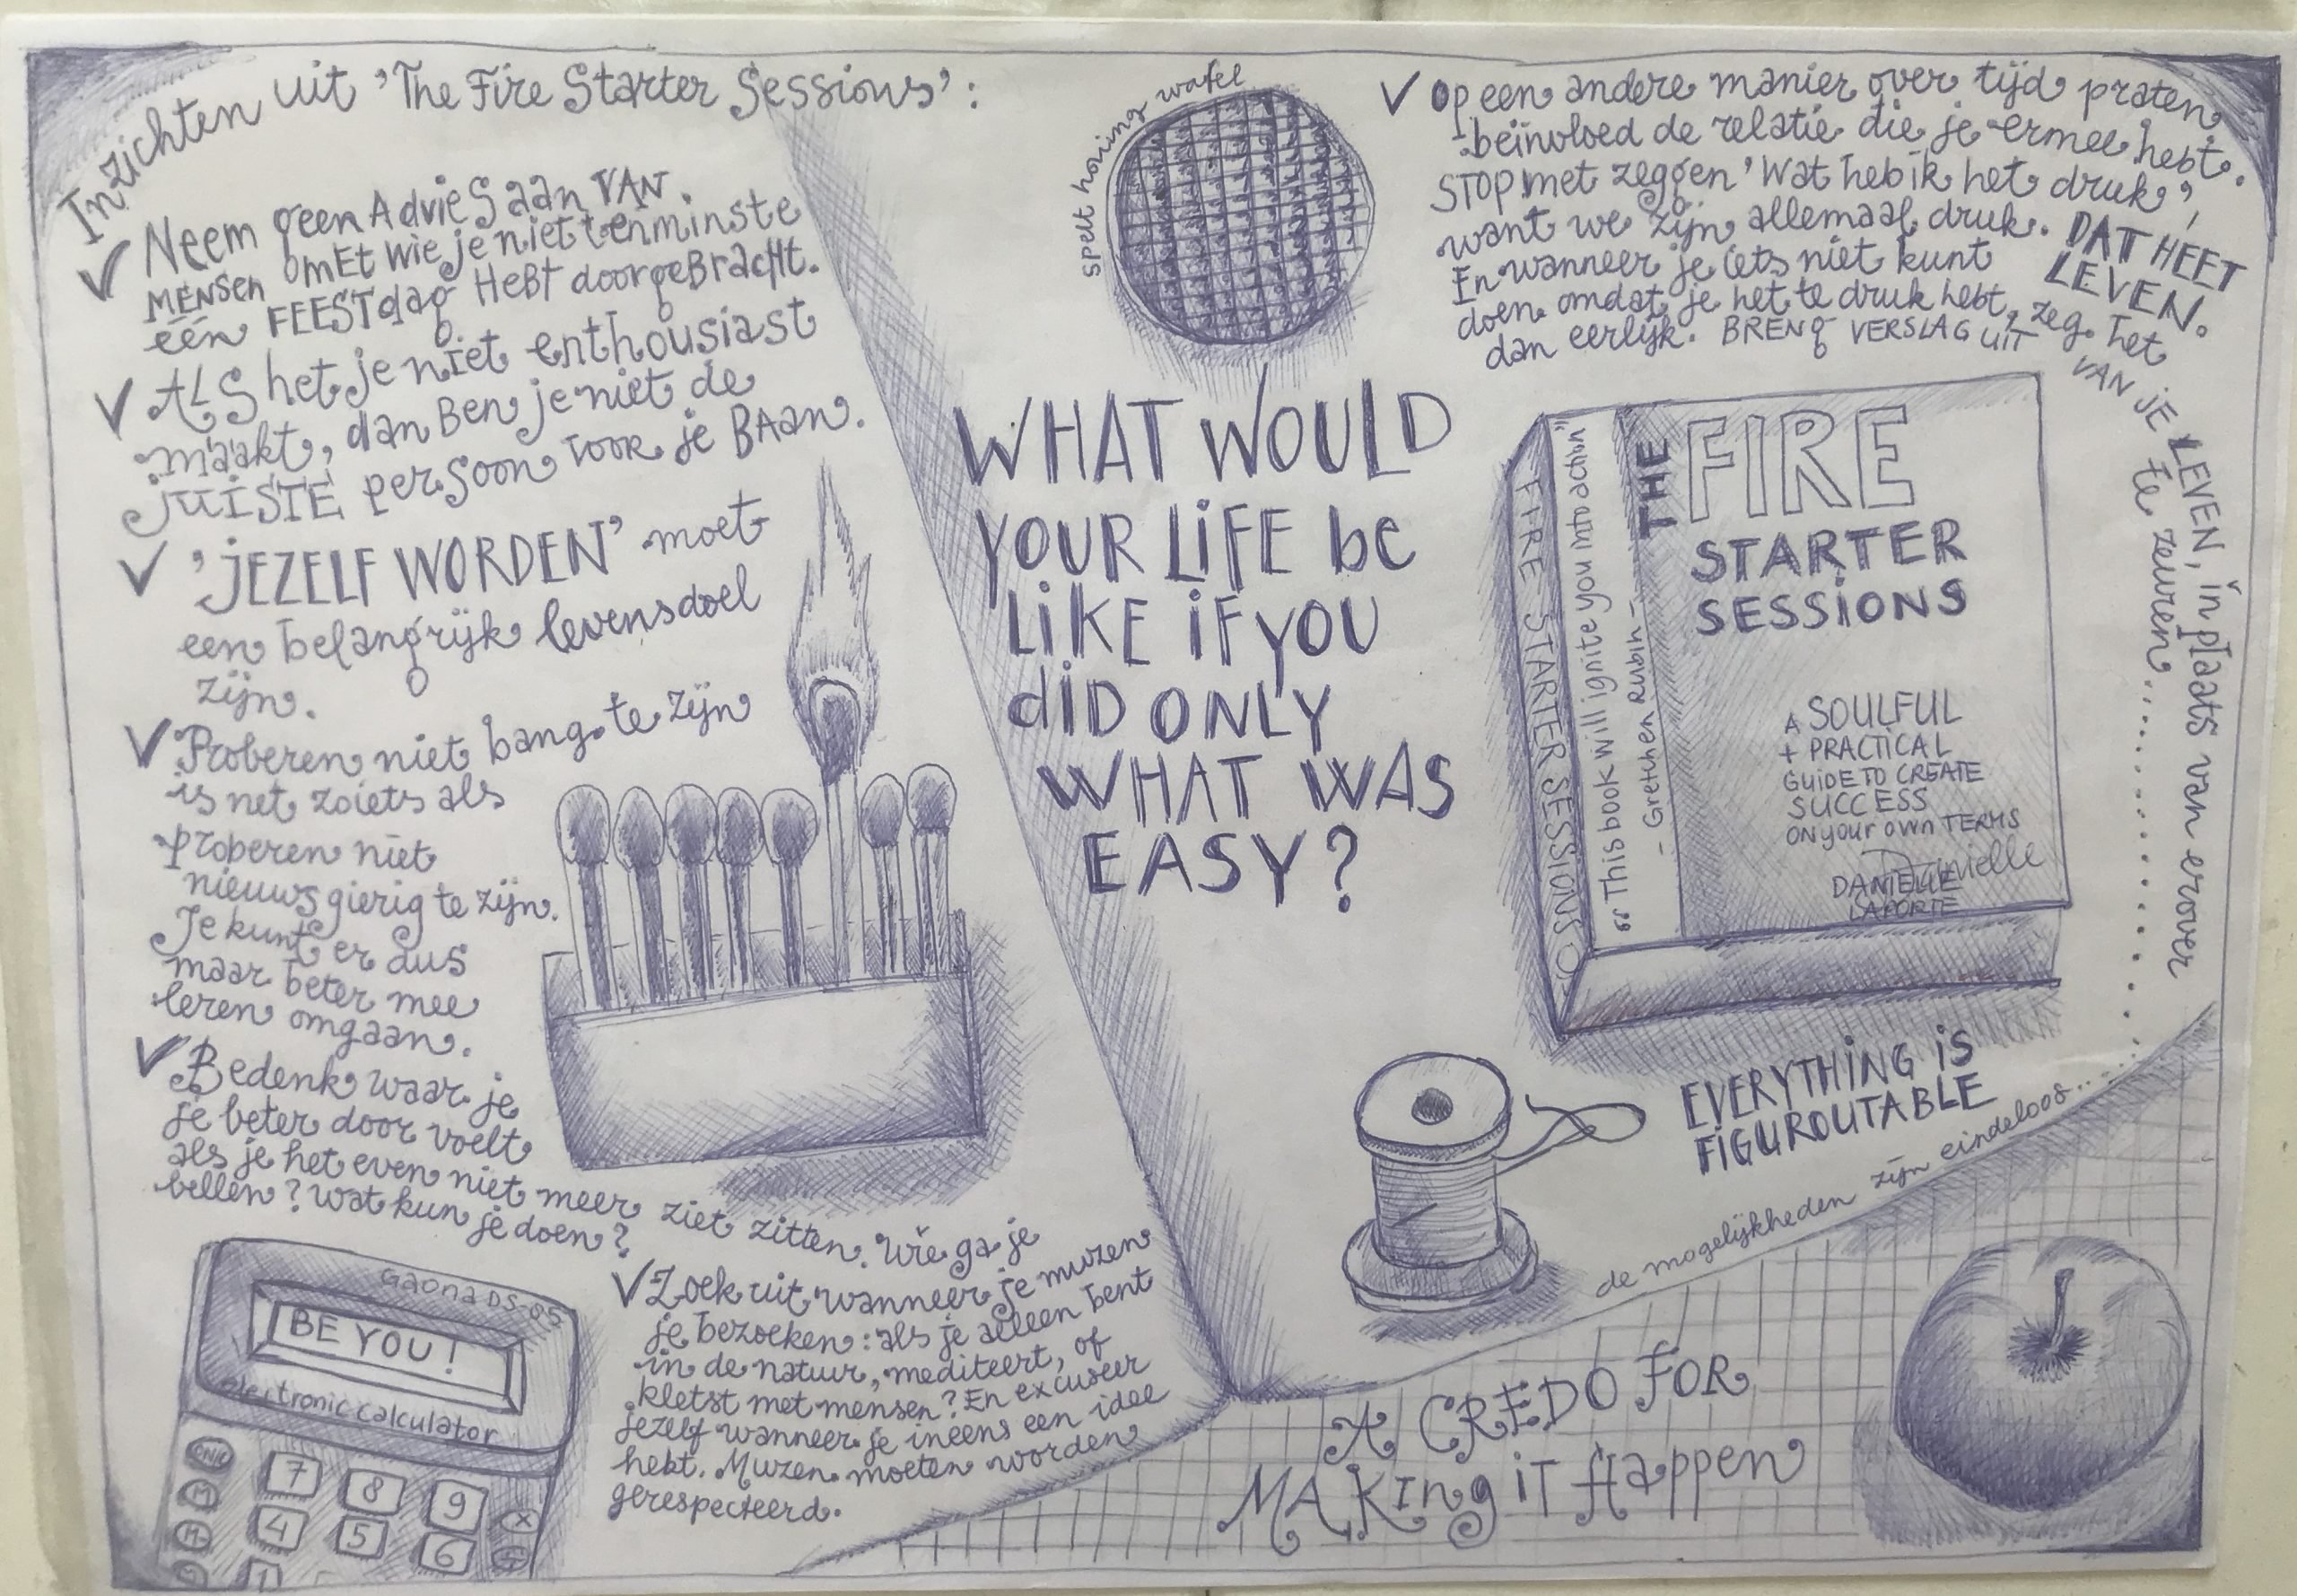 Inzichten uit 'The Fire Starter Sessions':
✓ Neem geen Advies aan VAN
MENSEN omEt wie je niet tenminste
één FEESTdag HEBT doorgeBracht.
✓ ALS het je niet enthousiast
maakt, dan Ben je niet de
JUISTE persoon voor je BAan.
✓ 'JEZELF WORDEN' moet
een belangrijk levensdoel
zijn.
✓ Proberen niet bang te zijn
is net zoiets als
proberen niet
nieuwsgierig te zijn.
Je kunt er dus
maar beter mee
leren omgaan.
✓ Bedenk waar je
je beter door voelt
als je het even niet meer ziet zitten. Wie ga je
bellen? Wat kun je doen?
Gaona DS-05
BE YOU!
electronic calculator
7 8 9 ×
4 5 6
1
✓ Zoek uit wanneer je muzen
je bezoeken: als je alleen bent
in de natuur, mediteert, of
kletst met mensen? En excuseer
jezelf wanneer je ineens een idee
hebt. Muzen moeten worden
gerespecteerd.
spelt honing wafel
WHAT WOULD
YOUR LIFE be
LIKE iF YOU
diD ONLY
WHAT WAS
EASY?
✓ Op een andere manier over tijd praten
beïnvloed de relatie die je ermee hebt.
STOP met zeggen 'Wat heb ik het druk',
want we zijn allemaal druk. DAT HEET
LEVEN.
En wanneer je iets niet kunt
doen omdat je het te druk hebt, zeg het
dan eerlijk. BRENG VERSLAG UIT
VAN JE LEVEN, in plaats van erover
te zeuren...
FIRE STARTER SESSIONS
"This book will ignite you into action"
- Gretchen Rubin -
THE
FIRE
STARTER
SESSIONS
A SOULFUL
+ PRACTICAL
GUIDE TO CREATE
SUCCESS
ON your own TERMS
Danielle
DANIELLE
LAPORTE
EVERYTHING iS
FIGUROUTABLE
de mogelijkheden zijn eindeloos...
A CREDO FOR
MAKing iT HAppen